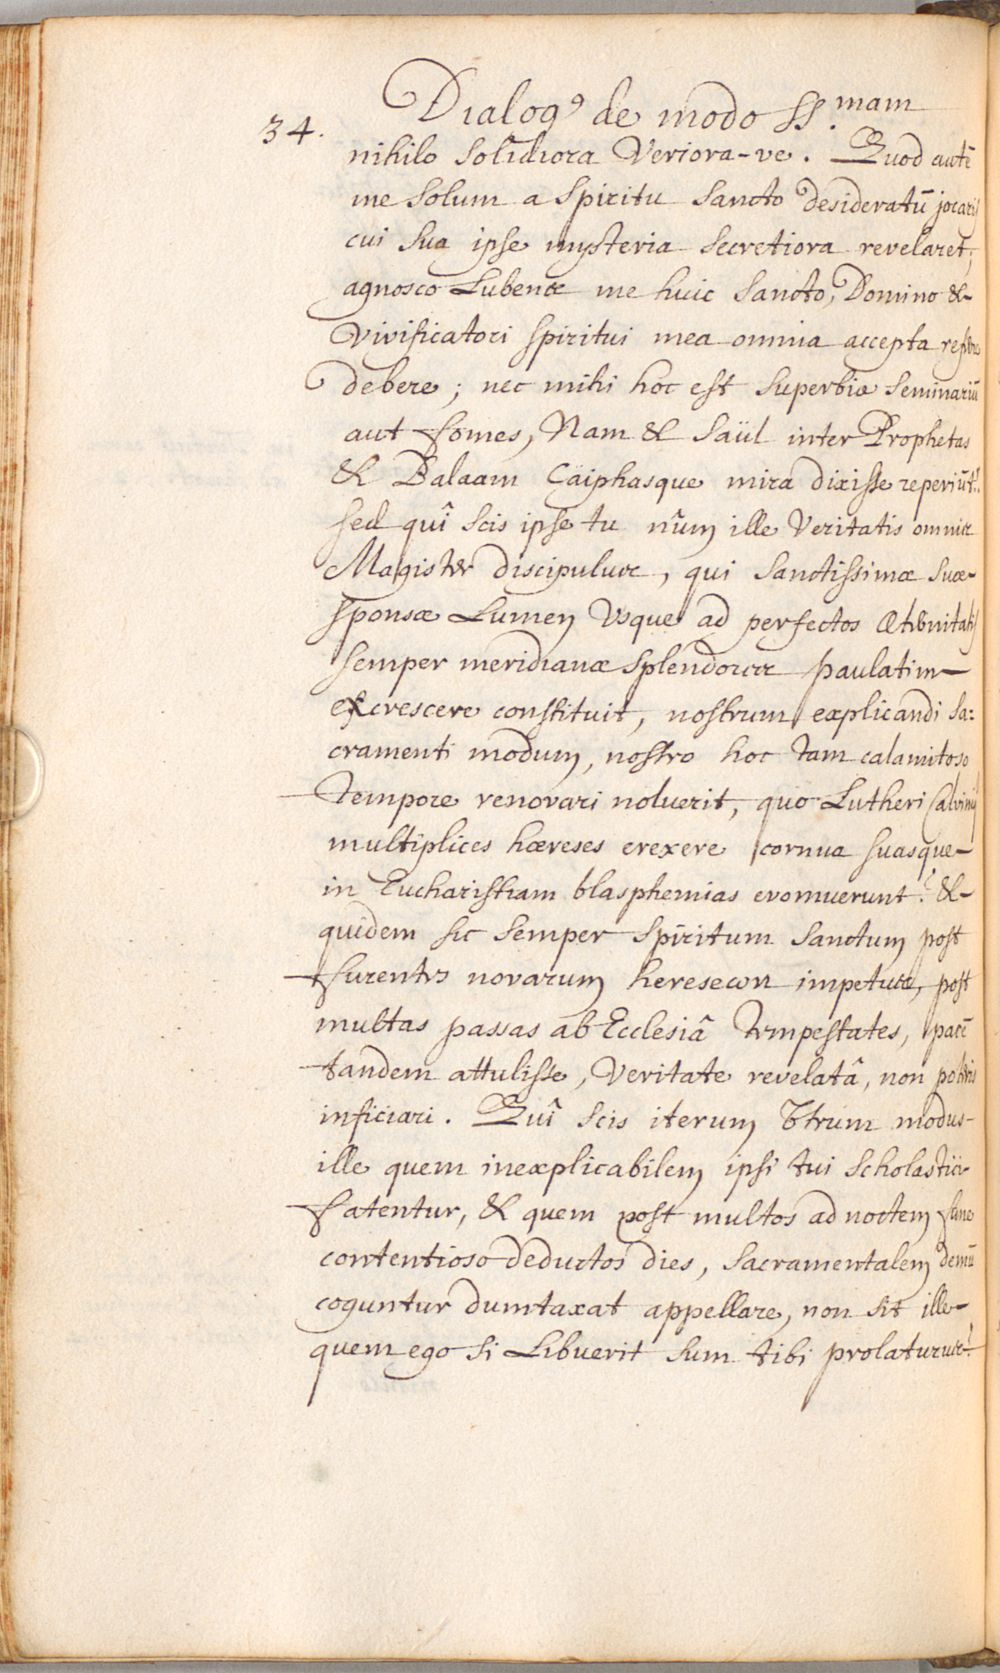 34.
Dialog9 de modo SS.mam
nihilo solidiora veriora-ve. Quod autē
me solum a Spiritu Sancto desideratū jocaris
cui sua ipse mysteria secretiora revelaret,
agnosco Lubens me huic Sancto, Domino &
Vivificatori Spiritui mea omnia accepta referre
debere; nec mihi hoc est superbiæ seminariū
aut fomes, Nam & Saül inter Prophetas
& Balaam Caïphasque mira dixisse reperiūt.
sed quî scis ipse tu nûm ille Veritatis omnis
Magister discipulus, qui sanctissimæ suæ
sponsæ Lumen Usque ad perfectos Æternitatis
semper meridianæ splendores paulatim
excrescere constituit, nostrum explicandi sa:
cramenti modum, nostro hoc tam calamitoso
tempore renovari noluerit, quo Lutheri Calvini
multiplices hæreses erexere cornua suasque
in Eucharistiam blasphemias evomuerunt? &
quidem sic semper Spiritum Sanctum post
furentes novarum hereseωn impetus, post
multas passas ab Ecclesiâ tempestates, pacē
tandem attulisse, Veritate revelatâ, non poteris
inficiari. Quî scis iterum Utrum modus
ille quem inexplicabilem ipsi tui Scholastici
fatentur, & quem post multos ad noctem fune
contentioso deductos dies, Sacramentalem demū
coguntur dumtaxat appellare, non sit ille
quem ego si Libuerit sum tibi prolaturus?